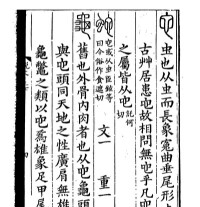 虫也从虫而長象冤曲垂尾形
古艸居患它故相問無它乎凡它
之屬皆从它託何切
它或从虫臣鉉等曰今俗作食遮切 文一 重一
龜 舊也外骨内肉者也从它龜頭
與它頭同天地之性廣肩無雄
龜鼈之類以它爲雄象足甲尾